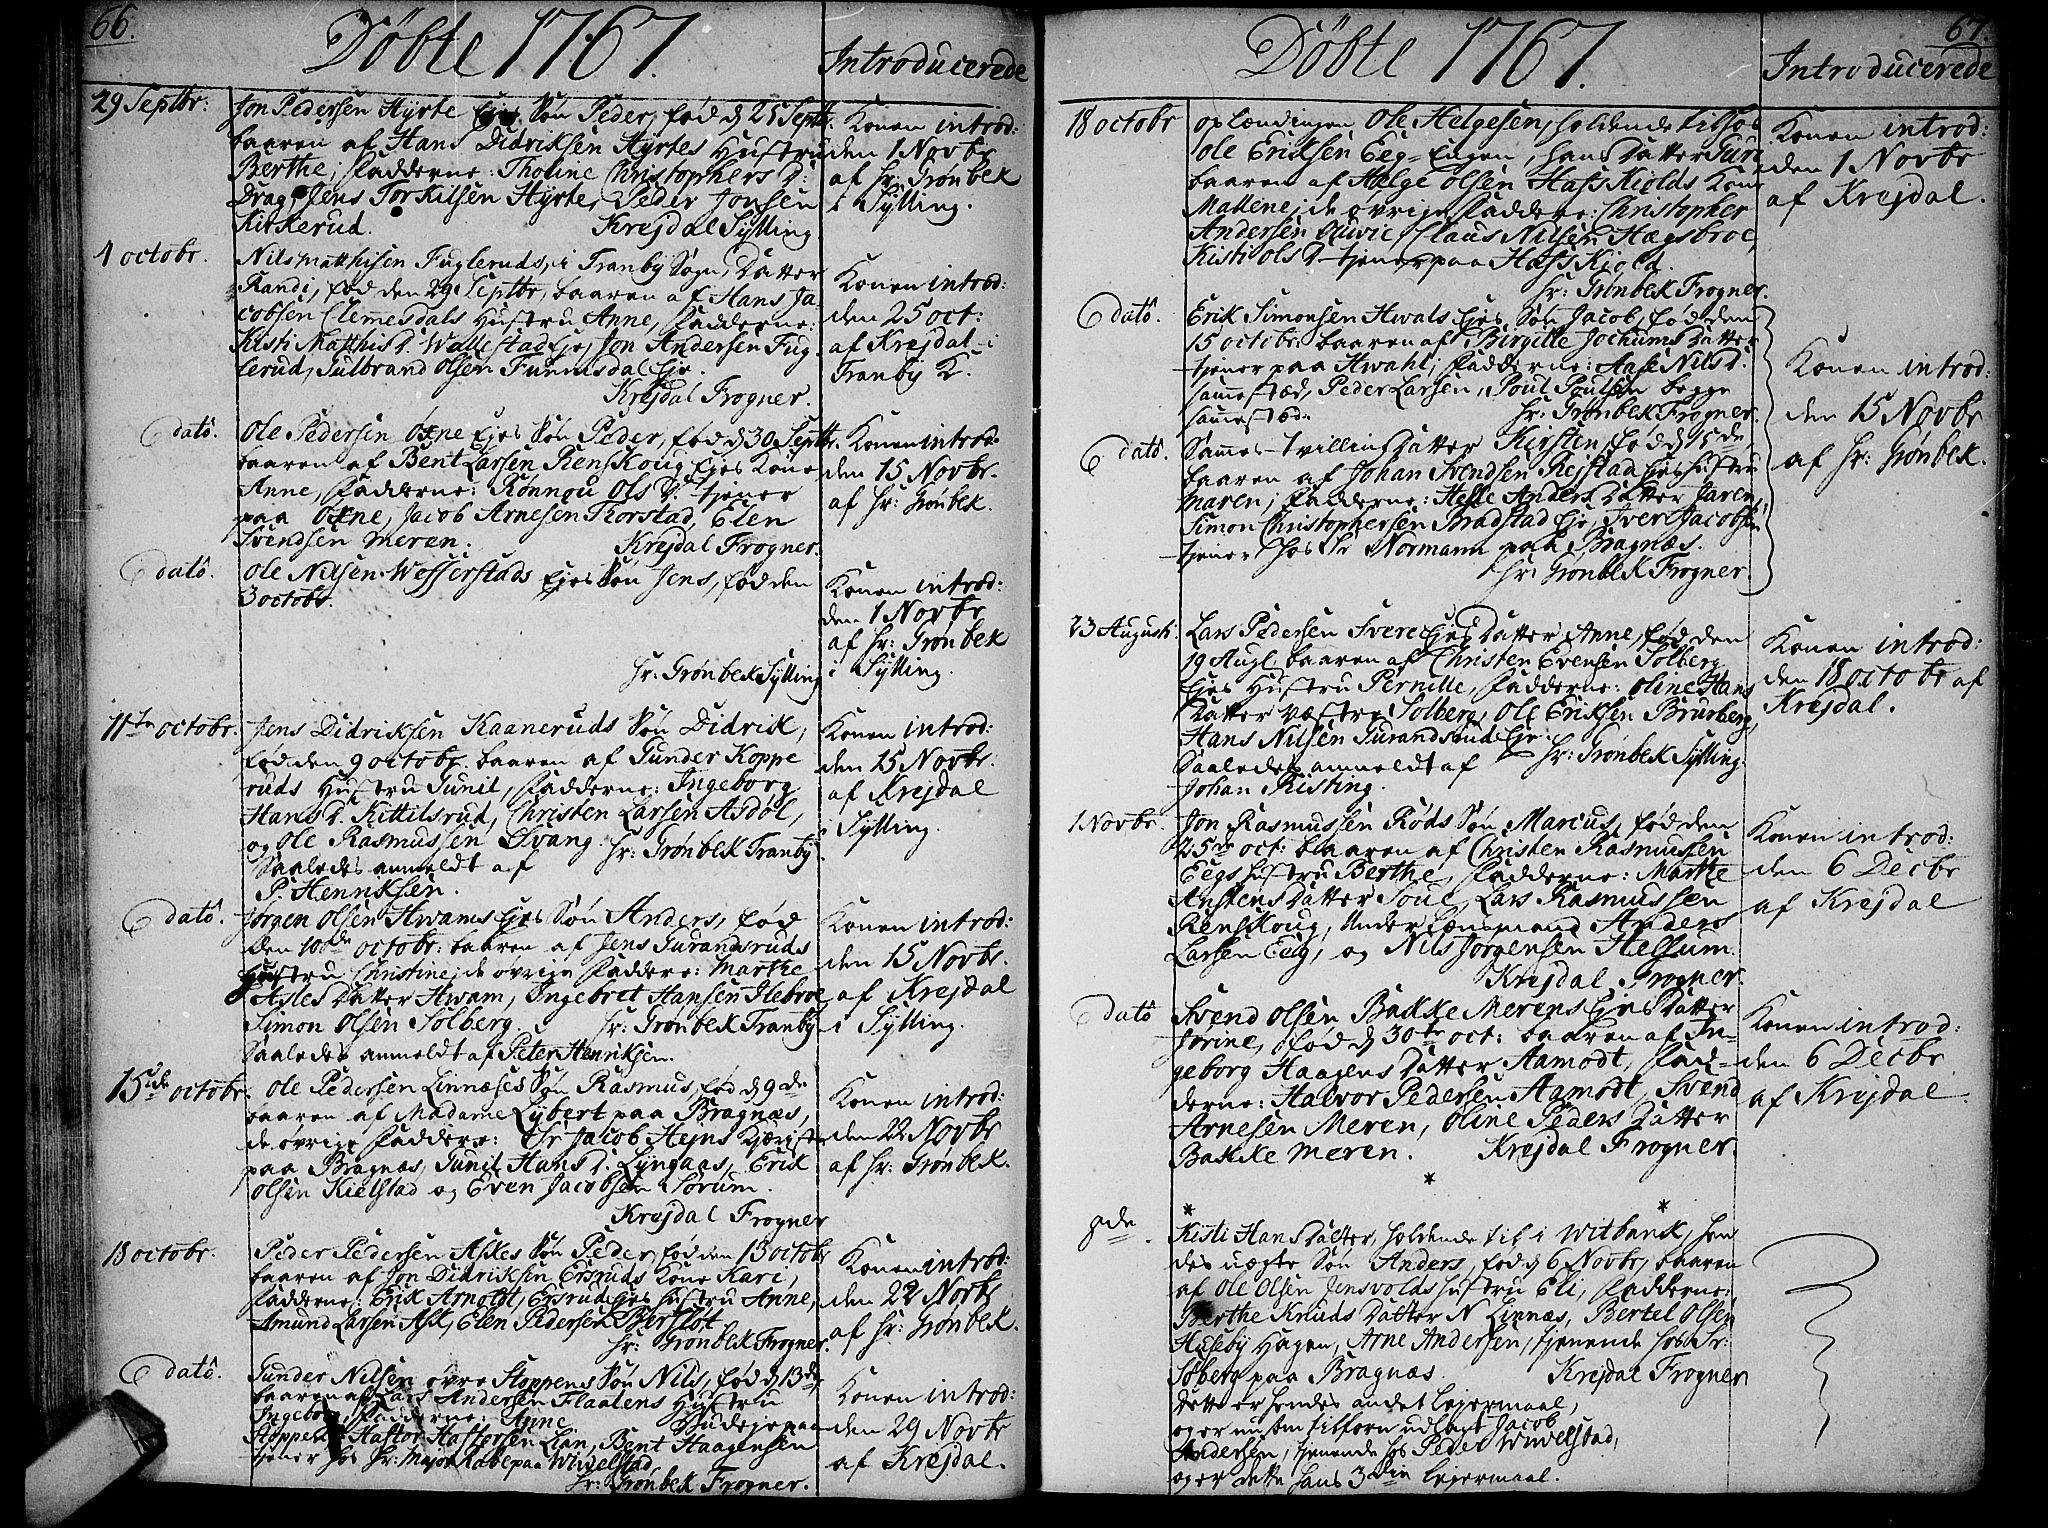 66.
Döbte 1767.
Introducerede
29 Septbr:
Jon Pedersen Hyrte Ejes Søn Peder, fød d 25 Septbr.
baaren af Hans Didriksen Hyrtes Hustru
Berthe; Fadderne: Tholine Christophers D:
Drag, Jens Torkilsen Hyrte, Peder Jonsen
Kirkerud. Krejdal Sylling
Konen introd:
den 1 Novbr
af Hr: Grønbek
i Sylling.
4 octobr.
Nils Matthisen Fugleruds, i Tranby Sogn, Datter
Randi, fød den 29 Septbr, baaren af Hans Ja-
cobsen Clemesdals Hustru Anne, Fadderne:
Kisti Matthis D. Wallestad Eje, Jon Andersen Fug-
lerud, Gulbrand Olsen Tuemsdal Eje.
Krejdal Frogner.
Konen introd:
den 25 oct:
af Krejdal i
Tranby K.
datô.
Ole Pedersen Oxne Ejes Søn Peder, fød d 30 Septbr.
baaren af Bent Larsen Renskoug Ejes Kone
Anne, Fadderne: Rønnou Ols D. tjener
paa Oxne, Jacob Arnesen Thorstad, Elen
Svendsen Meren. Krejdal Frogner.
Konen introd:
den 15 Novbr.
af Hr: Grønbek.
datô.
Ole Nilsen Wefferstads Ejes Søn Jens, fød den
3 octobr.
Hr: Grønbek Sylling
Konen introd:
den 1 Novbr
af Hr: Grønbek
i Sylling.
11te octobr.
Jens Didriksen Kaaneruds Søn Didrik,
fød den 9 octobr. baaren af Gunder Koppe
ruds Hustru Gunil, Fadderne: Ingeborg
Hans D. Kittilsrud, Christen Larsen Asdøl,
og Ole Rasmussen Svang. Hr: Grønbek Tranby
Saaledes anmeldt af
P. Henriksen.
Konen introd:
den 15 Novbr.
af Krejdal
i Sylling.
datô.
Jørgen Olsen Hwams Ejes Søn Anders, fød
den 10de octobr: baaren af Jens Gurandsruds
Hustru Christine, de øvrige Faddere: Marthe
Asles Datter Hwam, Ingebret Hansen Ilebroe
Simon Olsen Solberg. Hr: Grønbek Tranby
Saaledes anmeldt af Peter Henriksen.
Konen introd:
den 15 Novbr.
af Krejdal
i Sylling.
15de octobr.
Ole Pedersen Linneses Søn Rasmus, fød d 9de
baaren af Madame Lybert paa Bragnæs,
de øvrige Faddere: Hr Jacob Hejns
paa Bragnæs, Gunil Hans D. Lyngaas, Erik
Olsen Kielstad og Even Jacobsen Sørum.
Krejdal Frogner
Konen introd:
den 22 Novbr
af Hr: Grønbek.
18 octobr.
Peder Pedersen Askes Søn Peder, fød den 13 octobr
baaren af Jon Didriksen Ersruds Kone Kari,
Fadderne: Erik Arnoldt, Ersrud Ejes Hustru Anne,
Amund Larsen Ask, Elen Pedersen Bersløt
Hr: Grønbek Frogner.
Konen introd:
den 22 Novbr
af Hr: Grønbek.
datô.
Gunder Nilsen øvre Stoppens Søn Nils, fød d 13de,
baaren af Lars Andersen Flaatens Hustru
Ingeborg, Fadderne: Anne Budeje paa
Stoppen, Haftor Haftorsen Lian, Bent Haagensen
tjener hos Hr: Major Rabe paa Wiwelstad
Hr: Grønbek Frogner.
Konen introd:
den 29 Novbr
af Krejdal.
67.
Döbte 1767.
Introducerede
18 octobr
oplændingen Ole Helgesen, holdende til hos
Ole Eriksen Eeg-Engen, hans Datter Guri
baaren af Helge Olsen Hafs Kiolds Kone
Mallene; de øvrige Faddere: Christopher
Andersen Auwie, Claus Nilsen Hægsbroe,
Kisti Ols D. tjener paa Hafs Kiold.
Hr: Grønbek Frogner.
Konen introd:
den 1 Novbr
af Krejdal.
datô.
Erik Simonsen Hwals Ejes Søn Jacob, fød den
15 octobr. baaren af Birgitte Jochums Datter
tjener paa Hwahl; Fadderne: Aase Nils D.
sammested, Peder Larsen, Poul Poulsen begge
sammested. Hr: Grønbek Frogner.
Konen introd:
den 15 Novbr
af Hr: Grønbek.
datô.
Sammes tvilling Datter Kirsten, fød d 15de,
baaren af Johan Svendsen Rejstad Ejes Hustru
Maren; Fadderne: Helle Anders Datter Jaren,
Simon Christophersen Bradstad Eje, Iver Jacobsen
tjener hos Sr Normann paa Bragnæs.
Hr: Grønbek Frogner.
23 Augusti.
Lars Pedersen Svere Ejes Datter Anne, fød den
19 Augl. baaren af Christen Evensen Solberg
Ejes Hustru Pernille, Fadderne: Oline Hans
Datter Vestre Solberg, Ole Eriksen Brurberg,
Hans Nilsen Gurandsrud Eje.
Saaledes anmeldt af Hr: Grønbek Sylling.
Johan Risting.
Konen introd:
den 18 octobr af
Krejdal.
1 Novbr.
Jon Rasmussen Røds Søn Marcus, fød den
25de oct: baaren af Christen Rasmussen
Eegs Hustru Berthe, Fadderne: Marthe
Anstens Datter Soul, Lars Rasmussen
Renskoug, Under Lensmand Anders
Larsen Eeg, og Nils Jorgensen Helsum.
Krejdal Frogner.
Konen introd:
den 6 Decbr
af Krejdal
datô
Svend Olsen Bakke Merens Ejes Datter
Jorine, fød d 30te oct: baaren af In-
geborg Haagens Datter Aamodt, Fad-
derne: Halvor Pedersen Aamodt, Svend
Arnesen Meren, Oline Peders Datter
Bakke Meren. Krejdal Frogner.
Konen introd:
den 6 Decbr
af Krejdal.
* * *
8de.
Kisti Hans Datter, holdende til i Witbank, hen
des uægte Søn Anders, fød d 6 Novbr, baaren
af Ole Olsen Jensvolds Hustru Eli, Fadderne:
Berthe Knuds Datter N Linnæs, Bertel Olsen
Huseby Hagen, Arne Andersen, tjenende hos Sr:
Søberg paa Bragnæs. Krejdal Frogner
Dette er hendes andet Lejermaal,
og er nu som tilforn udlagt Jacob
Andersen, tjenende hos Peder Wiwelstad,
og er dette hans 3die Lejermaal.